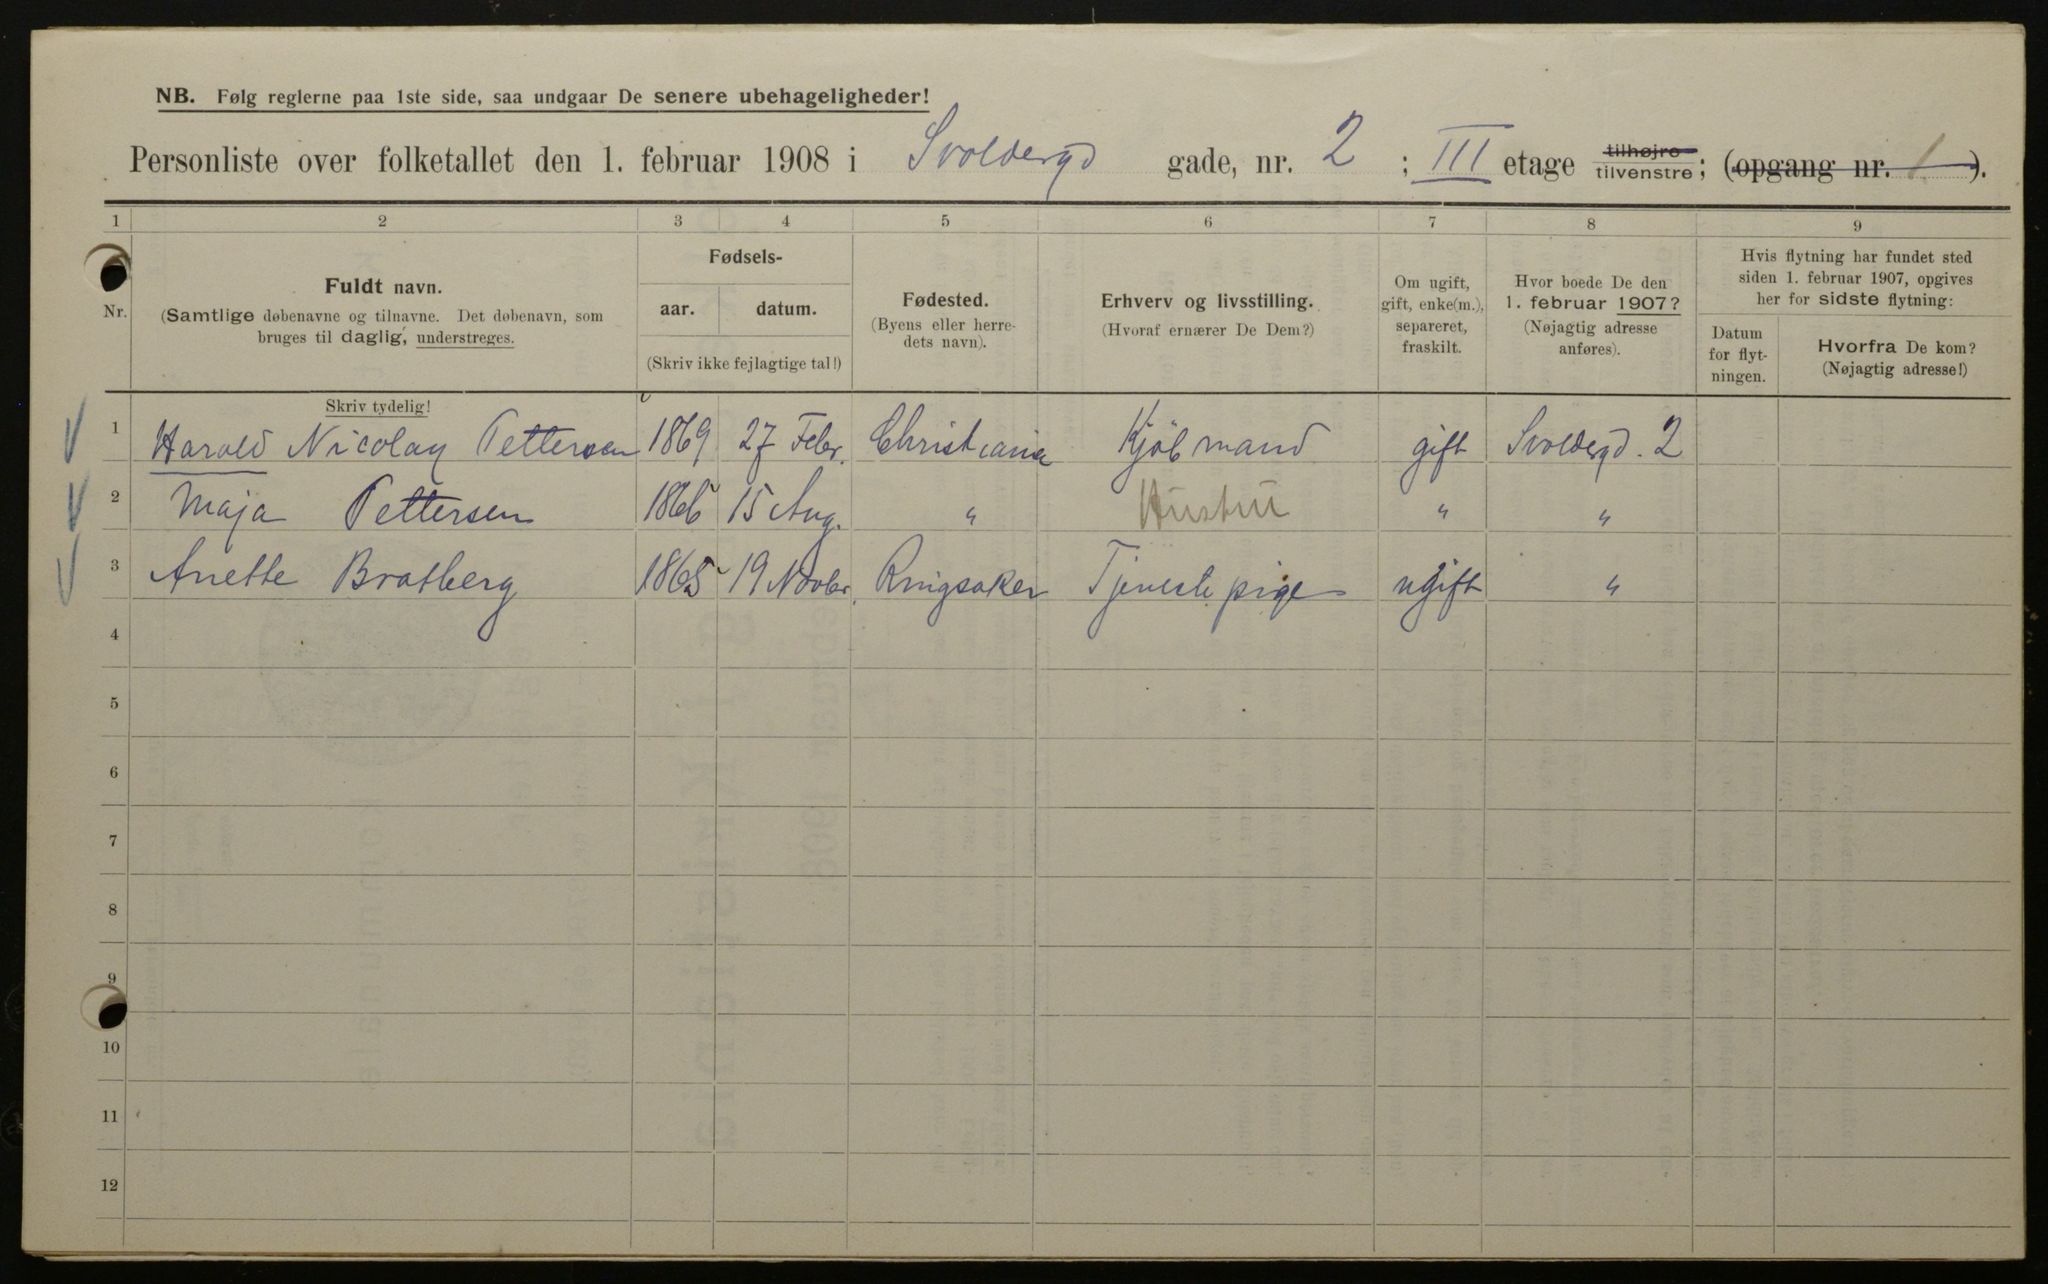 NB. Følg reglerne paa 1ste side, saa undgaar De senere ubehageligheder!
Personliste over folketallet den 1. februar 1908 i Svoldergd gade, nr. 2 ; III etage tilhøjre tilvenstre ; (opgang nr. 1 ).
1 2 3 4 5 6 7 8 9
Nr.
Fuldt navn.
(Samtlige døbenavne og tilnavne. Det døbenavn, som
bruges til daglig, understreges.
Skriv tydelig!
Fødsels-
aar. datum.
(Skriv ikke fejlagtige tal!)
Fødested.
(Byens eller herre-
dets navn).
Erhverv og livsstilling.
(Hvoraf ernærer De Dem?)
Om ugift,
gift, enke(m.),
separeret,
fraskilt.
Hvor boede De den
1. februar 1907?
(Nøjagtig adresse
anføres).
Hvis flytning har fundet sted
siden 1. februar 1907, opgives
her for sidste flytning:
Datum
for flyt-
ningen.
Hvorfra De kom?
(Nøjagtig adresse!)
1 Harald Nicolay Pettersen 1869 27 Febr. Christiania Kjöbmand gift Svoldergd. 2
2 Maja Pettersen 1866 15 Aug. " Hustru " "
3 Anette Bratberg 1865 19 Novbr. Ringsaker Tjenestepige ugift "
4
5
6
7
8
9
10
11
12